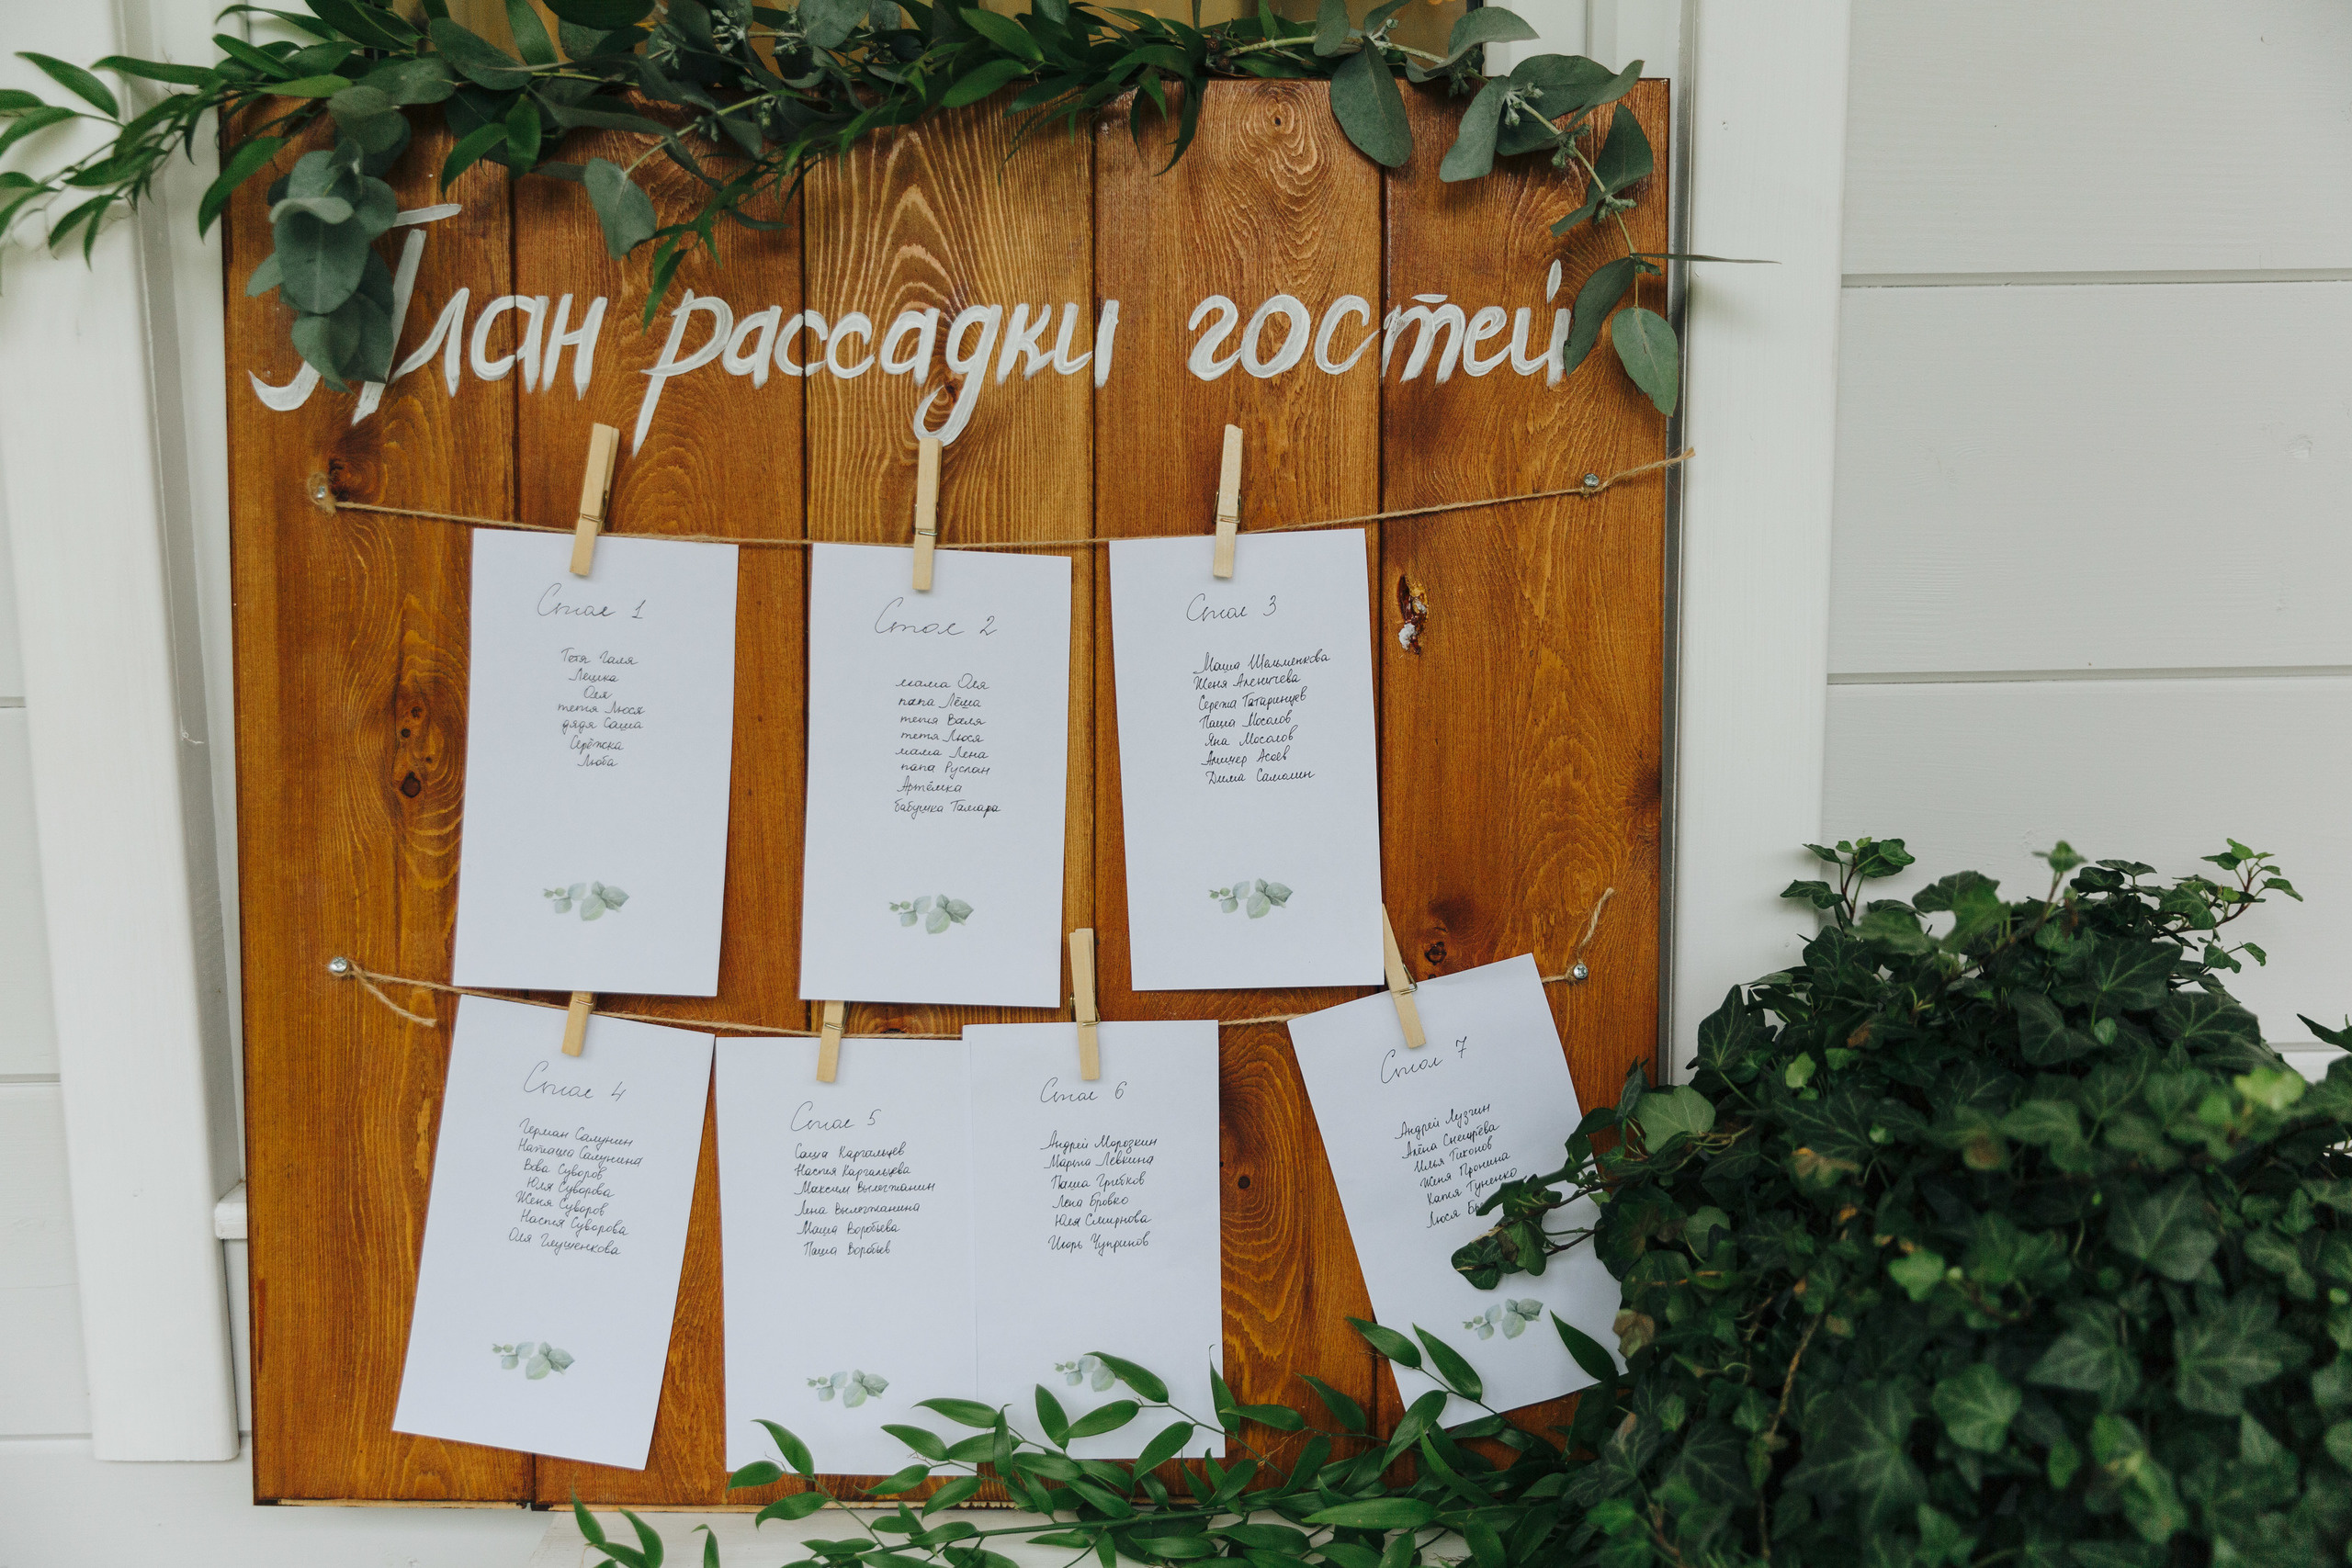 План рассадки гостей
Стол 1
Тетя Галя
Лёшка
Оля
тетя Люся
дядя Саша
Серёжка
Люба
Стол 2
мама Оля
папа Лёша
тетя Валя
тетя Люся
мама Лена
папа Руслан
Артёмка
бабушка Тамара
Стол 3
Маша Шельменкова
Женя Аленичева
Сережа Татаринцев
Паша Мосолов
Яна Мосолов
Асаев
Дима Самолин
Стол 4
Герман Салунин
Наташа Салунина
Вова Суворов
Юля Суворова
Женя Суворов
Настя Суворова
Оля Глушенкова
Стол 5
Саша Каргальцев
Настя Каргальцева
Максим Вылегжанин
Лена Вылегжанина
Маша Воробьева
Паша Воробьев
Стол 6
Андрей Морозкин
Марьта Левкина
Паша Грибков
Лена Бровко
Юля Смирнова
Игорь Чупринов
Стол 7
Андрей Лузгин
Алёна Снещрёва
Илья Тихонов
Женя Пронина
Катя Туненко
Люся